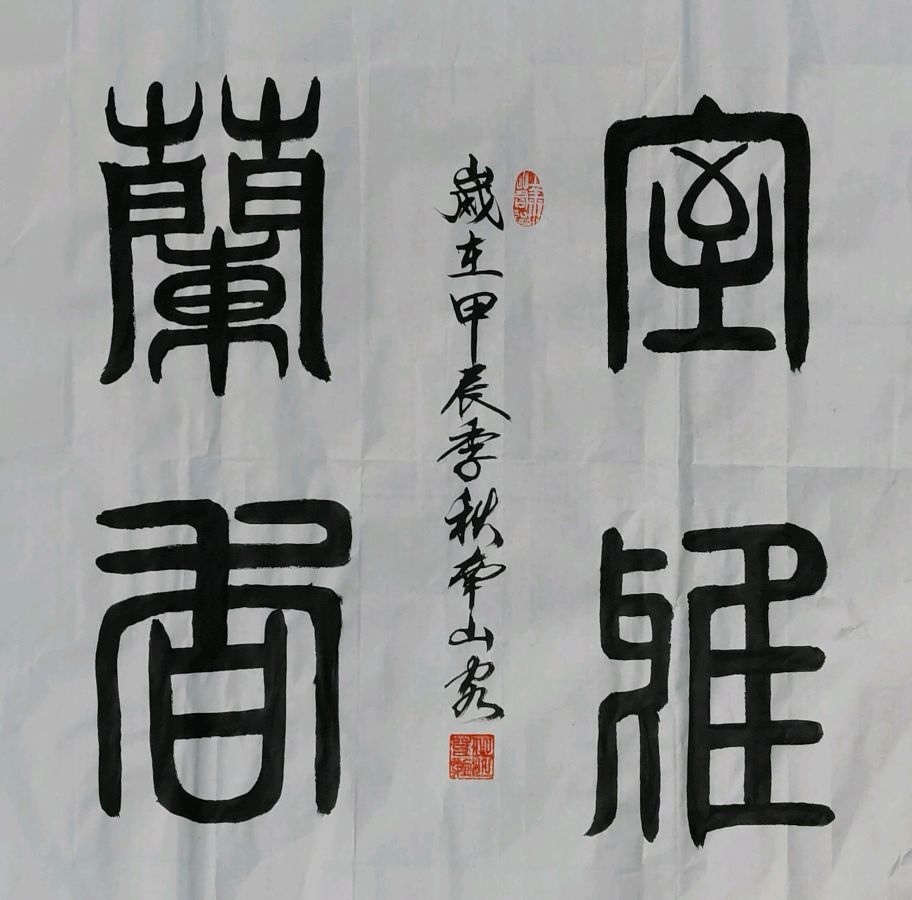 室雅
蘭香
歲在甲辰季秋南山客